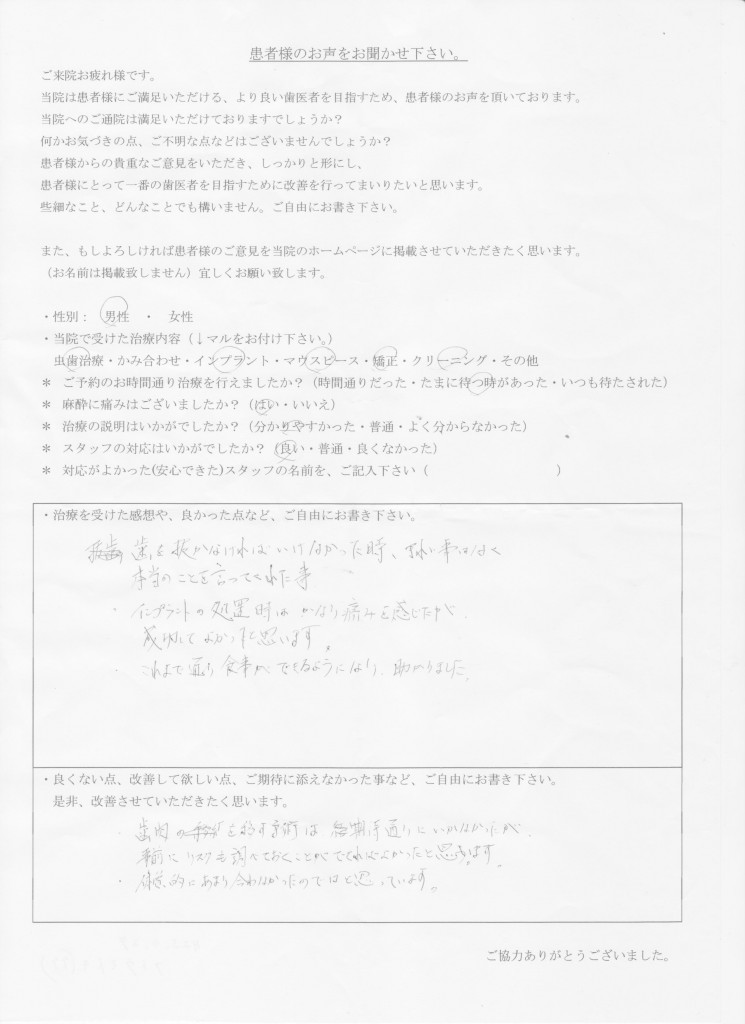 患者様のお声をお聞かせ下さい。
ご来院お疲れ様です。
当院は患者様にご満足いただける、より良い歯医者を目指すため、患者様のお声を頂いております。
当院へのご通院は満足いただけておりますでしょうか？
何かお気づきの点、ご不明な点などはございませんでしょうか？
患者様からの貴重なご意見をいただき、しっかりと形にし、
患者様にとって一番の歯医者を目指すために改善を行ってまいりたいと思います。
些細なこと、どんなことでも構いません。ご自由にお書き下さい。
また、もしよろしければ患者様のご意見を当院のホームページに掲載させていただきたく思います。
（お名前は掲載致しません）宜しくお願い致します。
・性別： 男性 ・ 女性
・当院で受けた治療内容（↓マルをお付け下さい。）
虫歯治療・かみ合わせ・インプラント・マウスピース・矯正・クリーニング・その他
＊ ご予約のお時間通り治療を行えましたか？（時間通りだった・たまに待つ時があった・いつも待たされた）
＊ 麻酔に痛みはございましたか？（はい・いいえ）
＊ 治療の説明はいかがでしたか？（分かりやすかった・普通・よく分からなかった）
＊ スタッフの対応はいかがでしたか？（良い・普通・良くなかった）
＊ 対応がよかった(安心できた)スタッフの名前を、ご記入下さい（ ）
・治療を受けた感想や、良かった点など、ご自由にお書き下さい。
歯を抜かなければいけなかった時、
本当のことを言ってくれた事
・インプラントの処置時はかなり痛みを感じたが、
成功してよかったと思います。
・これまで通り食事ができるようになり、助かりました。
・良くない点、改善して欲しい点、ご期待に添えなかった事など、ご自由にお書き下さい。
是非、改善させていただきたく思います。
・歯肉の を移す手術は 通りにいかなかったが、
事前にリスクも調べておくことができればよかったと思います。
・体質的にあまり合わなかったのではと思っています。
ご協力ありがとうございました。